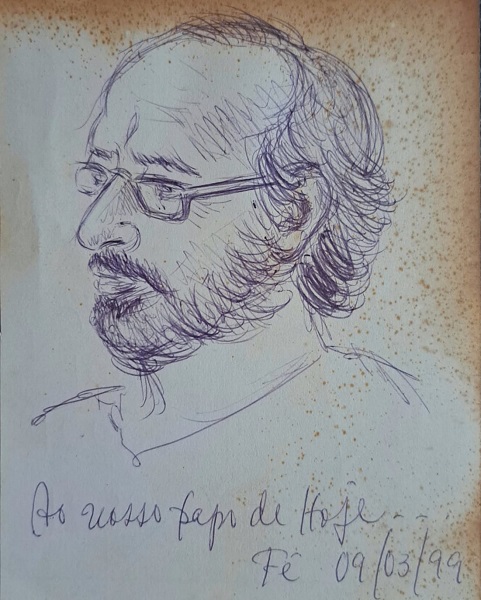 Ao nosso papo de Hoje...
Fê 09/03/99